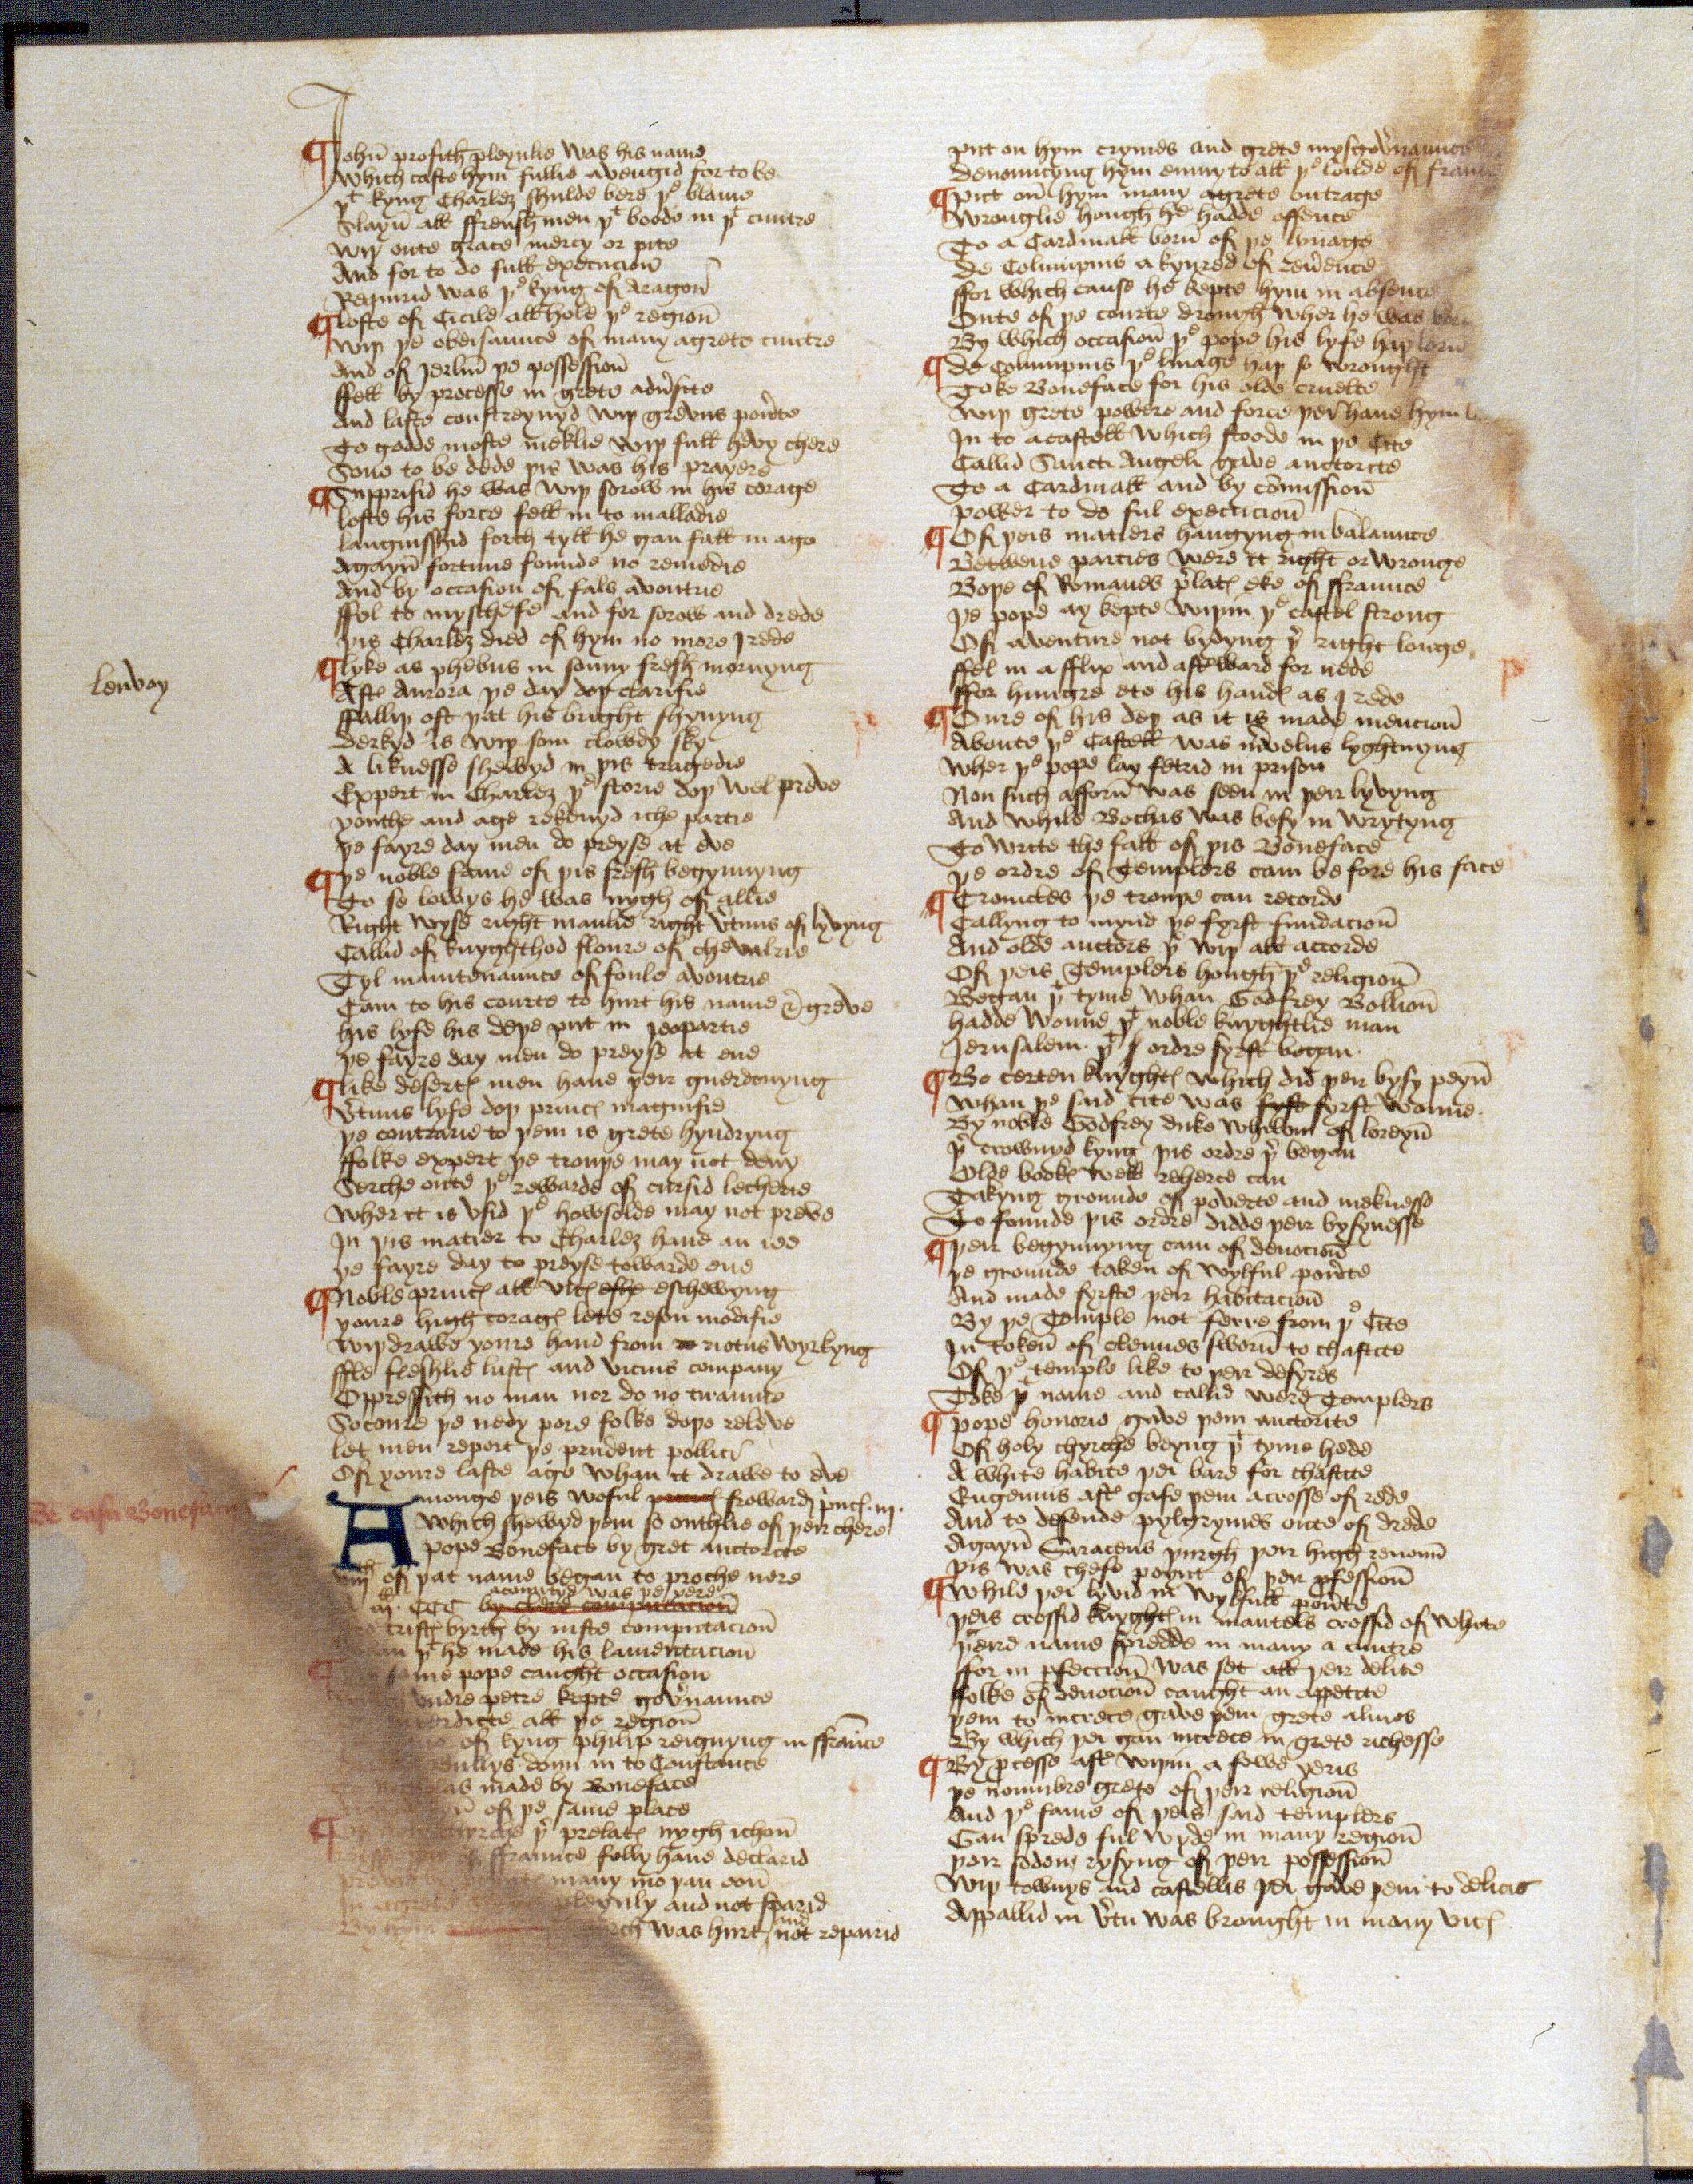 John̄ profith pleynlie was his name
Which caste hym fullie avengid for to be
þt kyng Charlez shulde bere þe blame
Slayn̄ all ffrensh men þt boode in þt cuntre
Wiþ oute grace mercy or pite
And for to do full execucion̄
Requirid was þe kyng of Aragon̄
¶ Loste of Cicile all hole þe region̄
Wiþ þe obeisaunce of many a grete cuntre
And of Jerlm̄ þe possession̄
ffell by processe in grete adu̓site
And laste constreynyd wiþ grevus pou̓te
To godde moste meklie wiþ full hevy chere
Sone to be dede þis was his prayere
¶ Supprisid he was wiþ sorow in his corage
Loste his force fell in to malladie
Languisshid forth tyll he gan fall in age
Agayn̄ fortune founde no remedie
And by occasion of fals avoutrie
ffel to myschefe and for sorow and drede
þis Charlez died of hym no more J rede
lenvoy
¶ Lyke as phebus in sonny fresh mornyng
Aft̉ Aurora þe day doþ clarifie
ffalliþ oft þat his bright shynyng
Derkyd is wiþ som clowdy sky
A liknesse shewyd in þis tragedie
Expert in Charlez þe storie doþ wel preve
Youthe and age rekenyd iche partie
þe fayre day men do preyse at eve
¶ þe noble fame of þis fresh begynnyng
To se lowys he was nygh of allie
Right wyse right manlie right v̓tuus of lyvyng
Callid of knyghthod floure of chevalrie
Tyl maintenaunce of foule avoutrie
Cam to his courte to hurt his name & greve
his lyfe his deþe put in jeopartie
þe fayre day men do preyse at eue
¶ like desertꝭ men have þeir guerdonyng
V̓tuus lyfe doþ princꝭ magnifie
þe contrarie to þem is grete hyndryng
ffolke expert þe trouþe may not deny
Serche oute þe rewarde of cursid lecherie
Wher it is vsid þe howsolde may not preve
In þis matier to Charlez haue an iee
þe fayre day to preyse towarde eue
¶ Noble princꝭ all vicꝭ eschewyng
youre high coragꝭ lete reson modifie
Wiþdrawe youre hand from riotus wyrkyng
ffle fleshlie lustꝭ and vicius company
Oppressith no man nor do no tiraunie
Socoure þe nedy pore folke doþe releve
let men report þe prudent pollici
Of youre laste age whan it drawe to eve
de casu Bonefacij
Amonge þeis woful froward p̓ncꝭ .iij.
Which shewyd þem so outhlie of þeir chere
pope Boneface by gret auctorite
of þat name began to proche nere
acountyd was þe yere
CCC by clere computacion̄
cristꝭ byrth by iuste computacion̄
þt he made his lamentacion̄
same pope caught occasion
vndre petre kepte gou̓naunce
all þe region̄
of kyng philip reignyng in ffraunce
doun in to Constance
made by Boneface
of þe same place
¶ þt prelatꝭ nygh ichon̄
ffraunce fully haue declarid
many mo þan oon̄
pleynly and not sparid
was hurt and not repairid
put on hym crymes and grete mysgou̓naunce
Denouncyng hym enmy to all þe londe of fraunce
¶ put on̄ hym many a grete outrage
Wronglie hough he hadde offence
To a Cardinall born̄ of þe lynage
De Columpnis a kynred of reu̓ence
ffor which cause he kepte hym in absence
Oute of þe courte drough wher he was born
By which occasion̄ þe pope his lyfe haþ lorn̄
¶ De Columpnis þe linage haþ so wrought
Toke Boneface for his olde cruelte
Wiþ grete powere and force þei haue hym
In to a castell which stoode in þe Cite
Callid Sancti Angeli gave auctorite
To a Cardinall and by com̄ission̄
power to do ful execucion̄
¶ Of þeis matiers hangyng in balaunce
Betwene parties were it right or wronge
Boþe of Romanes p̓latꝭ eke of ffraunce
þe pope ay kepte wiþin þe castel strong
Of aventure not bydyng þr right longe
ffel in a fflix and aft̉ward for nede
ffor hungre ete his handꝭ as J rede
¶ Oure of his deþ as it is made mencion̄
Aboute þe Castell was m̓velus lyghtnyng
Wher þe pope lay fetrid in prison
Non such afforn̄ was seen in þeir lyvyng
And while Bochas was besy in wrytyng
To write the fall of þis Boneface
þe ordre of Templers cam be fore his face
¶ Cronicles þe trouþe can recorde
Callyng to mynd þe fyrst fundacion̄
And olde auctors þr wiþ all accorde
Of þeis Templers hough þe religion̄
Began þt tyme whan Godfrey Bollion̄
hadde wonne þt noble knyghtlie man
Jerusalem. þt ordre fyrst began.
¶ Bo certen knyghtꝭ which did þeir bysy peyn̄
Whan þe said cite was fyrst wonne.
By noble Godfrey duke whilom of loreyn̄
þr crownyd kyng þis ordre þr began
Olde bookꝭ well reherce can
Takyng grounde of poverte and meknesse
To founde þis ordre didde þeir bysynesse
¶ þeir begynnyng cam of deuocion̄
þe grounde taken of wylful pou̓te
And made fyrste þeir habitacion̄
By þe Temple not ferre from þe Cite
In token̄ of clennes sworn̄ to chastite
Of þe temple like to þeir desyres
Toke þt name and callid were Templers
¶ pope honorie gave þem auctorite
Of holy chyrche beyng þt tyme hede
A white habite þei bare for chastite
Eugenius aft̉ gafe þem a crosse of rede
And to defende pylgrymes oute of drede
Agayn̄ Saracens þurgh þeir high renoun̄
þis was chefe poynt of þeir p̱fession̄
¶ While þei lyvid in wylfull pou̓te
þeis crossid knyghtꝭ in mantels crossid of white
þeire name spredde in many a cuntre
ffor in p̱feccion̄ was set all þeir delite
ffolke of deuocion̄ caught an appetite
þem to increce gave þem grete almes
By which þei gan increce in grete richesse
¶ By p̱cesse aft̉ wiþin a fewe yeris
þe noumbre grete of þeir religion̄
And þe fame of þeis said templers
Gan sprede ful wyde in many region̄
þeir sodeny rysyng of þeir possession̄
Wiþ townys and castellis þei gave þem to delices
Appallid in v̓tu was brought in many vicꝭ